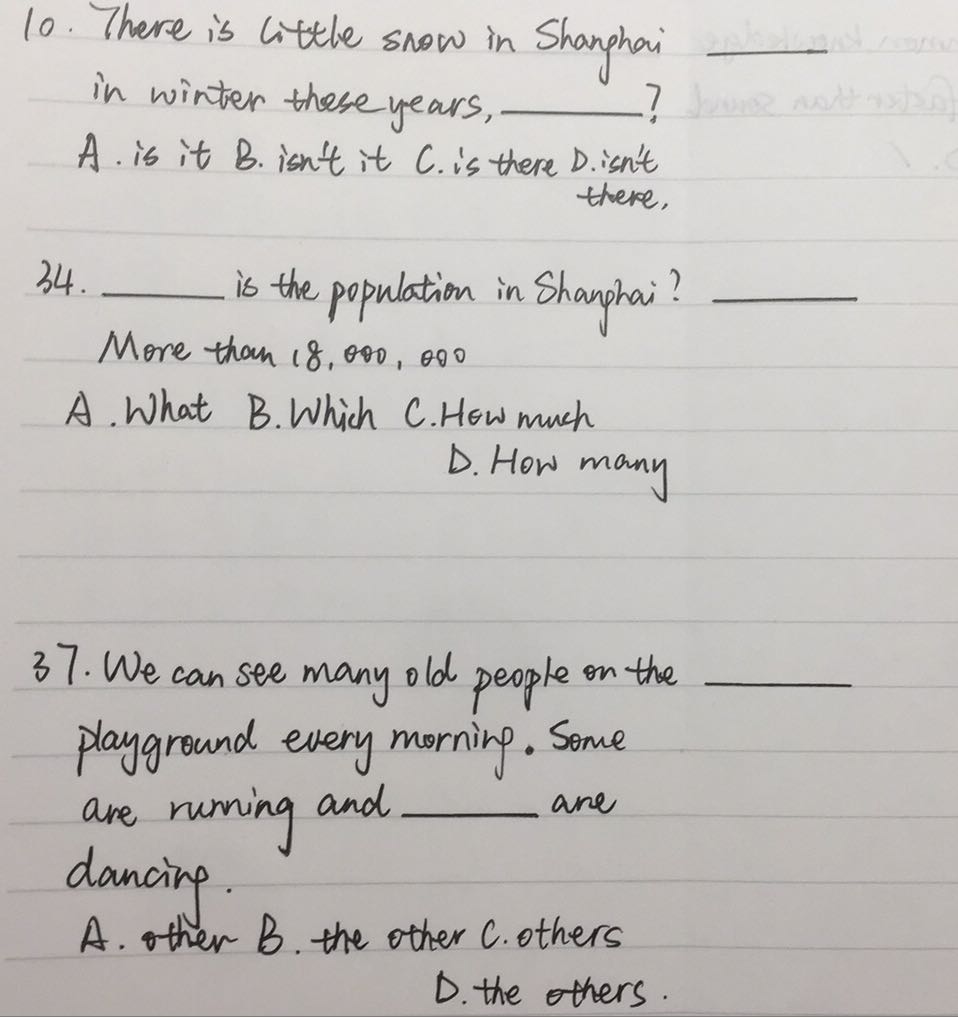 10. There is little snow in Shanghai ______
in winter these years, ______?
A. is it B. isn't it C. is there D. isn't
there.
34. ______ is the population in Shanghai? ______
More than 18,000,000
A. What B. Which C. How much
D. How many
37. We can see many old people on the ______
playground every morning. Some
are running and ______ are
dancing.
A. other B. the other C. others
D. the others.